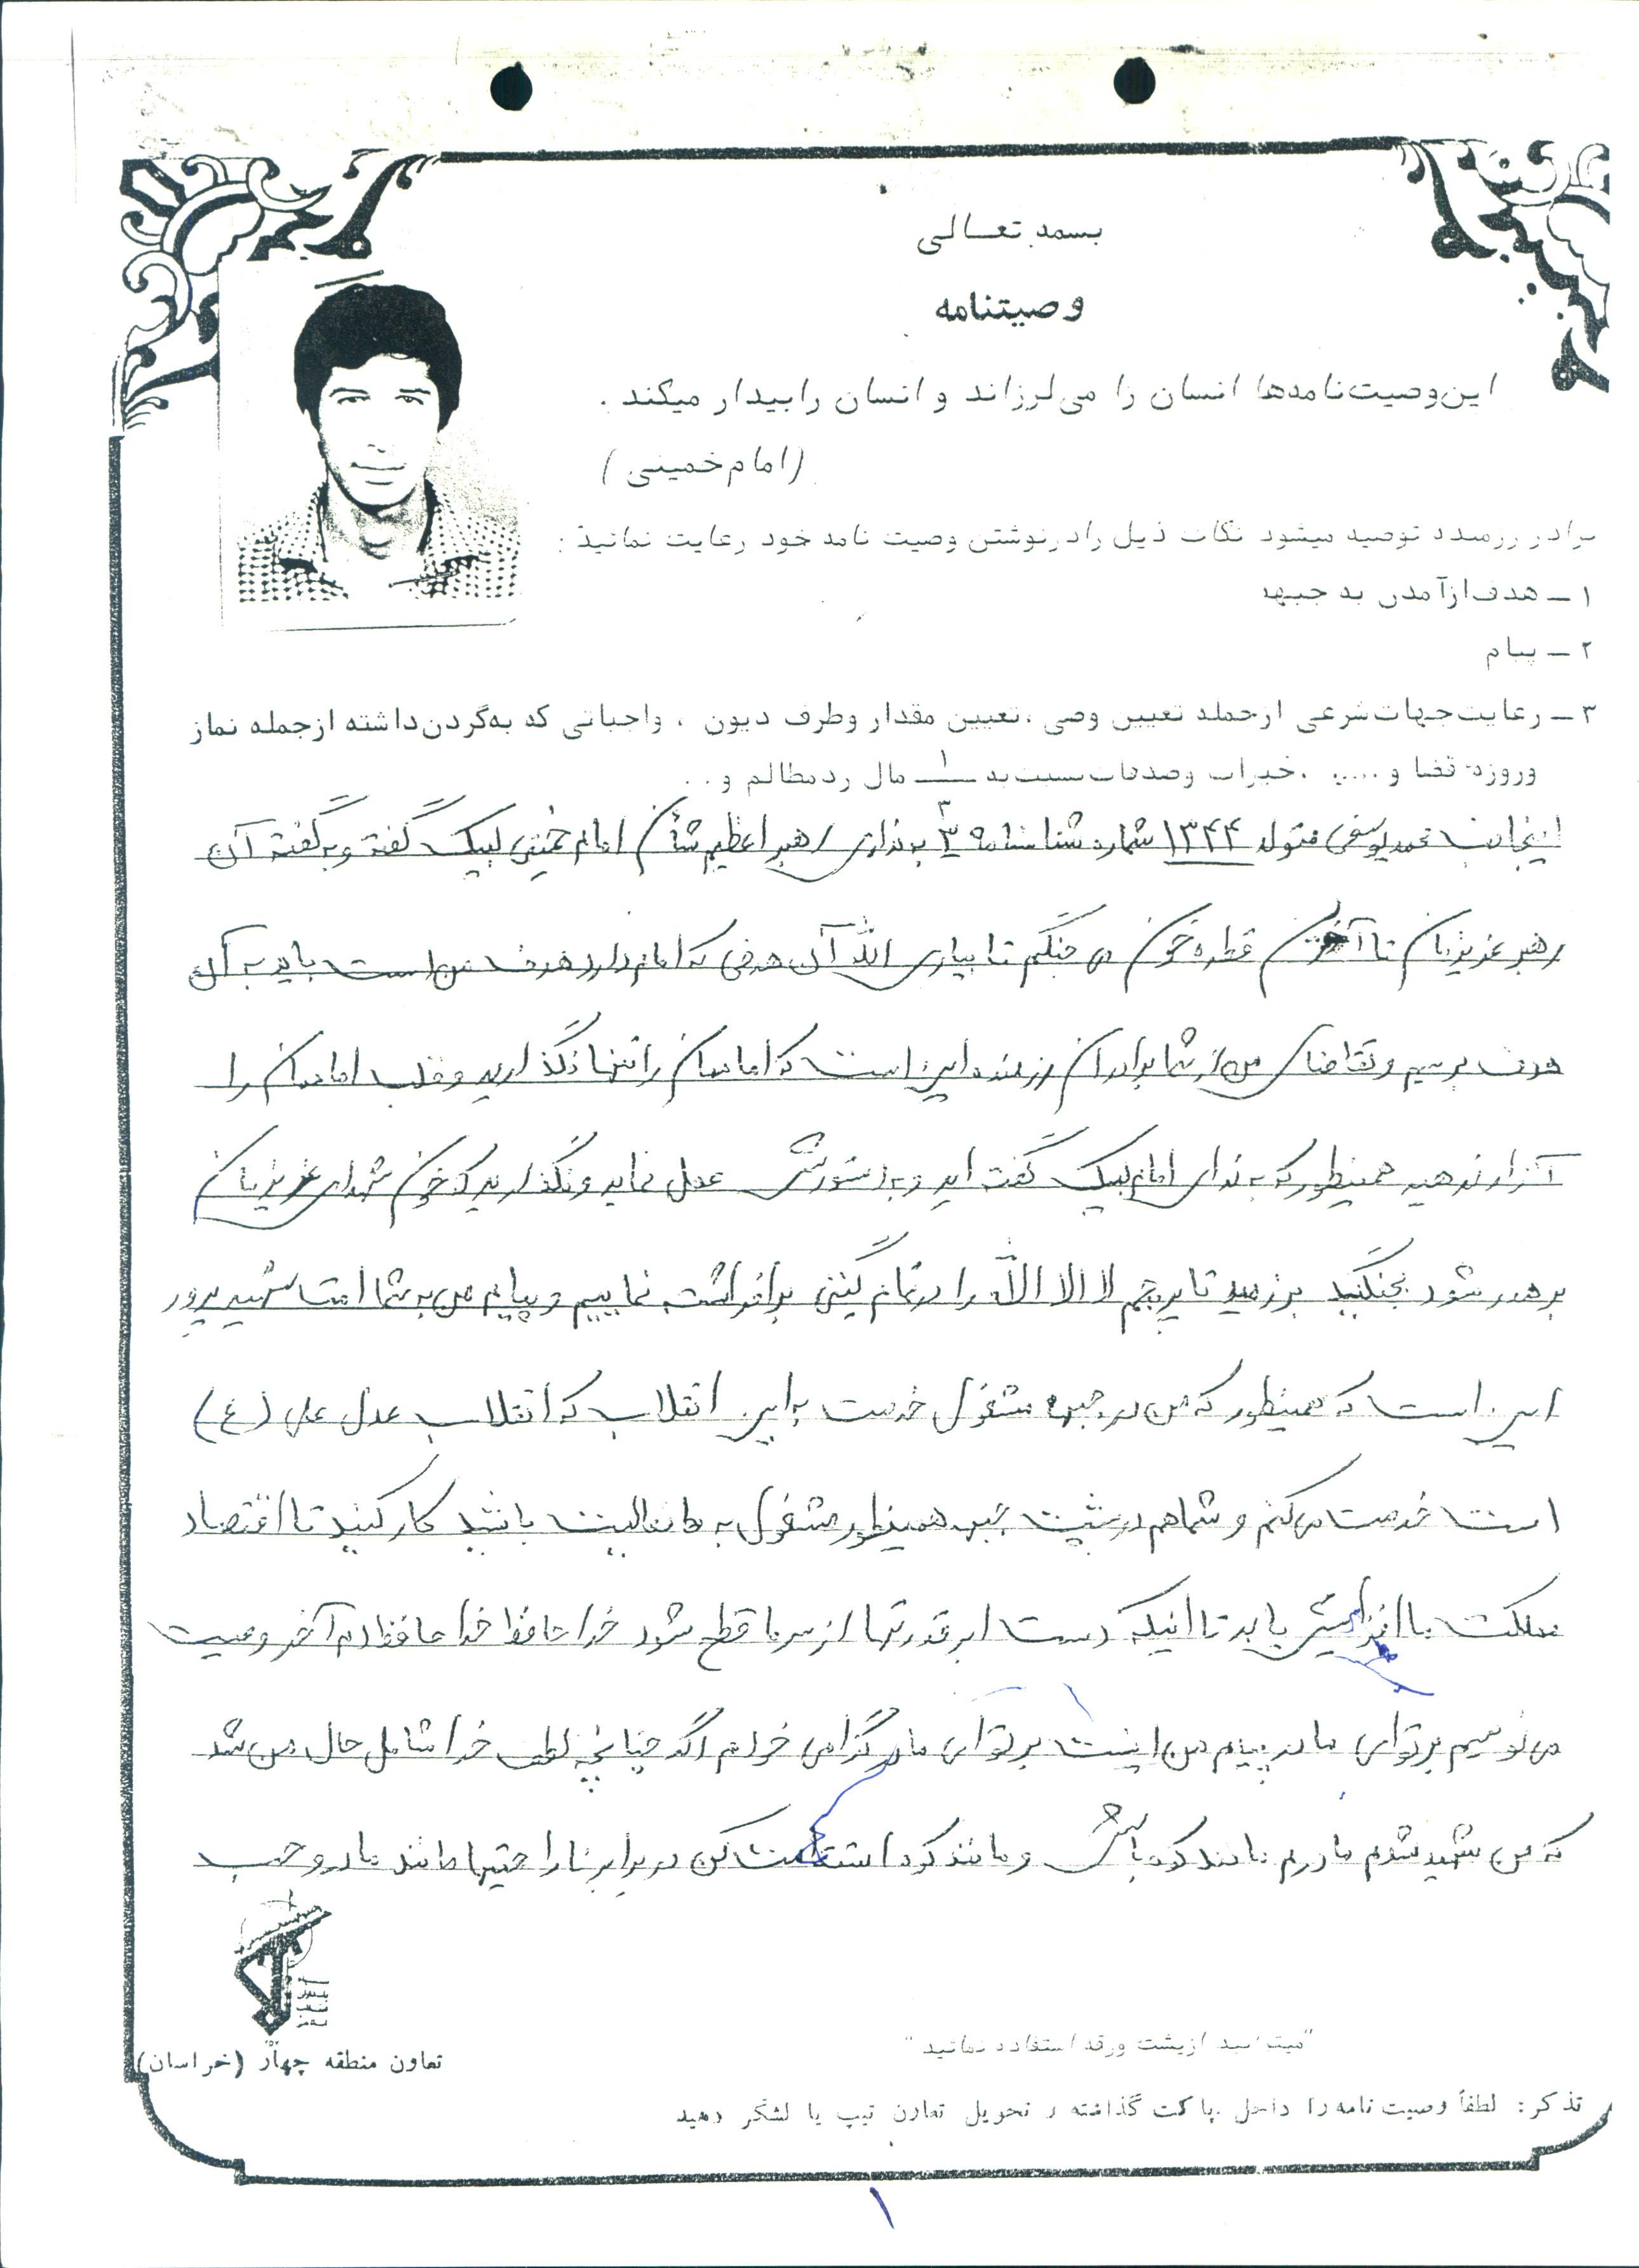 بسمه تعالی
وصیتنامه
این وصیت‌نامه‌ها انسان را می‌لرزاند و انسان را بیدار میکند .
(امام خمینی)
برادر رزمنده توصیه میشود نکات ذیل را در نوشتن وصیت نامه خود رعایت نمائید :
۱ ــ هدف از آمدن به جبهه
۲ ــ پیام
۳ ــ رعایت جهات شرعی از جمله تعیین وصی ، تعیین مقدار وطرف دیون ، واجباتی که به‌گردن داشته ازجمله نماز
وروزه قضا و ..... ، خیرات وصدقات نسبت به ۱/۳ مال رد مظالم و . .
اینجانب محمد یوسفی متولد ۱۳۴۴ شماره شناسنامه ۳ به ندای رهبر اعظیم شأن امام خمینی لبیک گفته و به گفته آن
رهبر عزیزمان تا آخرین قطره خون می جنگم تا بیاری الله آن هدفی که امام دارد هدف من است باید به آن
هدف برسیم و تقاضای من از شما برادران رزمنده این است که اماممان را تنها نگذارید و قلب اماممان را
آزار ندهید همینطور که به ندای امام لبیک گفته اید و به دستورش عمل نماید و نگذارید که خون شهدای عزیزمان
بر هدر شود بجنگید برزمید تا پرچم لا الا الله را در تمام گیتی برافراشته نماییم و پیام من به شما امت شهید پرور
این است که همینطور که من در جبهه مشغول خدمت به این انقلاب که انقلاب عدل علی (ع)
است خدمت می کنم و شما هم در پشت جبهه همینطور مشغول به فعالیت باشید کار کنید تا اقتصاد
مملکت ما افزایش یابد تا اینکه دست ابر قدرتها از سر ما قطع شود خدا حافظ خدا حافظ دم آخر وصیت
می نویسم بر تو ای مادر پیام من اینست بر تو ای مادر گرامی خودم اگر چنانچه لطف خدا شامل حال من شد
که من شهید شدم مادرم مانند کوه باش و مانند کوه استقامت کن در برابر ناراحتیها مانند مادر وهب
"میتوانید ازپشت ورقه استفاده نمائید"
تعاون منطقه چهار (خراسان)
تذکر : لطفاً وصیت نامه را داخل پاکت گذاشته و تحویل تعاون تیپ یا لشگر دهید
۱